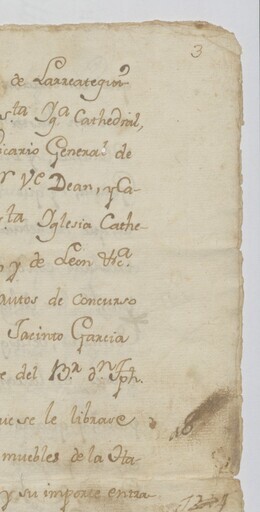 3
de Larreategui
sta Yga Cathedral,
icario General de
r Ve Dean, y Ca-
sta Yglesia Cathe-
y de Leon &ca
autos de concurso
Jacinto Garcia
e del Br dn Jph.
uese le librase
muebles de la
y su importe entra